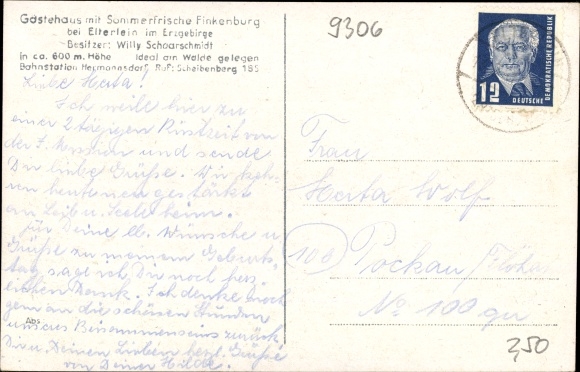 Gästehaus mit Sommerfrische Finkenburg
bei Elterlein im Erzgebirge
Besitzer: Willy Schaarschmidt
in ca. 600 m. Höhe Ideal am Walde gelegen
Bahnstation Hermannsdorf Ruf: Scheibenberg 185
Liebe Herta!
Ich weile hier zu
einer 2 tägigen Rüstzeit von
der und sende
Dir liebe Grüße. Wir
heute neu gestärkt
an Leib u. Seele heim.
Für Deine lb. Wünsche u.
Grüße zu meinem Geburts-
tag sage ich Dir noch herz-
lichen Dank. Ich denke noch
gern an die schönen Stunden
Abs.
unseres Beisammenseins zurück
Dir u. Deinen Lieben herzl. Grüße
von Deiner Hilde.
9306
12
DEUTSCHE
DEMOKRATISCHE REPUBLIK
Frau
Herta Wolf
(100) Pockau/Flöha
No 100
2,50